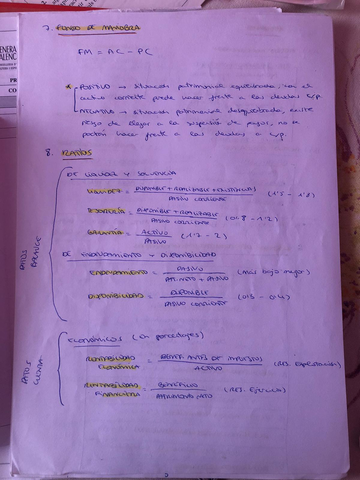 GENERA
VALENC
PR
CO
7. FONDO DE MANIOBRA
FM = AC - PC
POSITIVO → situación patrimonial equilibrada, con el
activo corriente puede hacer frente a las deudas c/p.
NEGATIVO → situación patrimonial desequilibrada, existe
riesgo de llegar a la suspensión de pagos, no se
podrán hacer frente a las deudas a c/p.
8. RATIOS
DE LIQUIDEZ Y SOLVENCIA
LIQUIDEZ = DISPONIBLE + REALIZABLE + EXISTENCIAS / PASIVO CORRIENTE (1'5 - 1'8)
TESORERÍA = DISPONIBLE + REALIZABLE / PASIVO CORRIENTE (0'8 - 1'2)
GARANTÍA = ACTIVO / PASIVO (1'7 - 2)
DE ENDEUDAMIENTO Y DISPONIBILIDAD
ENDEUDAMIENTO = PASIVO / PAT. NETO + PASIVO (más bajo mejor)
DISPONIBILIDAD = DISPONIBLE / PASIVO CORRIENTE (0'3 - 0'4)
DATOS BALANCE
ECONÓMICOS (en porcentajes)
RENTABILIDAD ECONÓMICA = BENEF. ANTES DE IMPUESTOS / ACTIVO (RES. Explotación)
RENTABILIDAD FINANCIERA = BENEFICIO / PATRIMONIO NETO (RES. Ejercicio)
DATOS